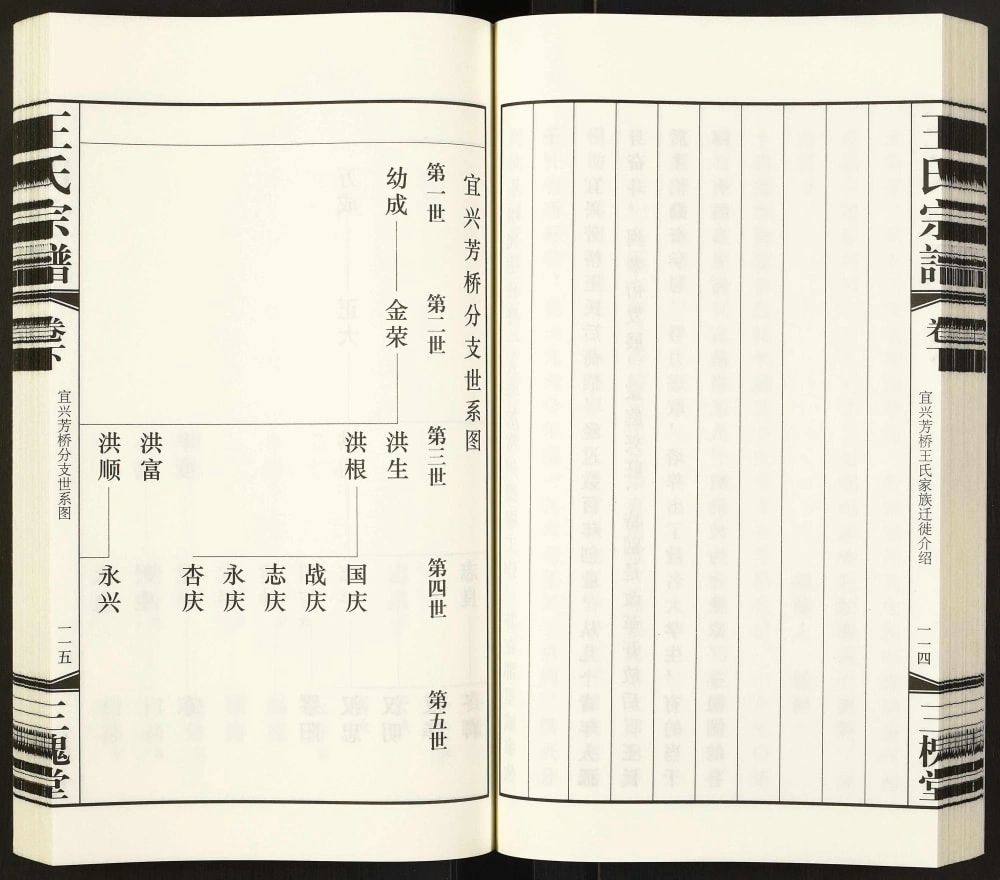 王氏宗谱
卷下
宜兴芳桥王氏家族迁徙介绍
一一四
三槐堂
宜兴芳桥分支世系图
第一世
第二世
第三世
第四世
第五世
幼成
金荣
洪生
洪根
洪富
洪顺
国庆
战庆
志庆
永庆
杏庆
永兴
王氏宗谱
卷下
宜兴芳桥分支世系图
一一五
三槐堂